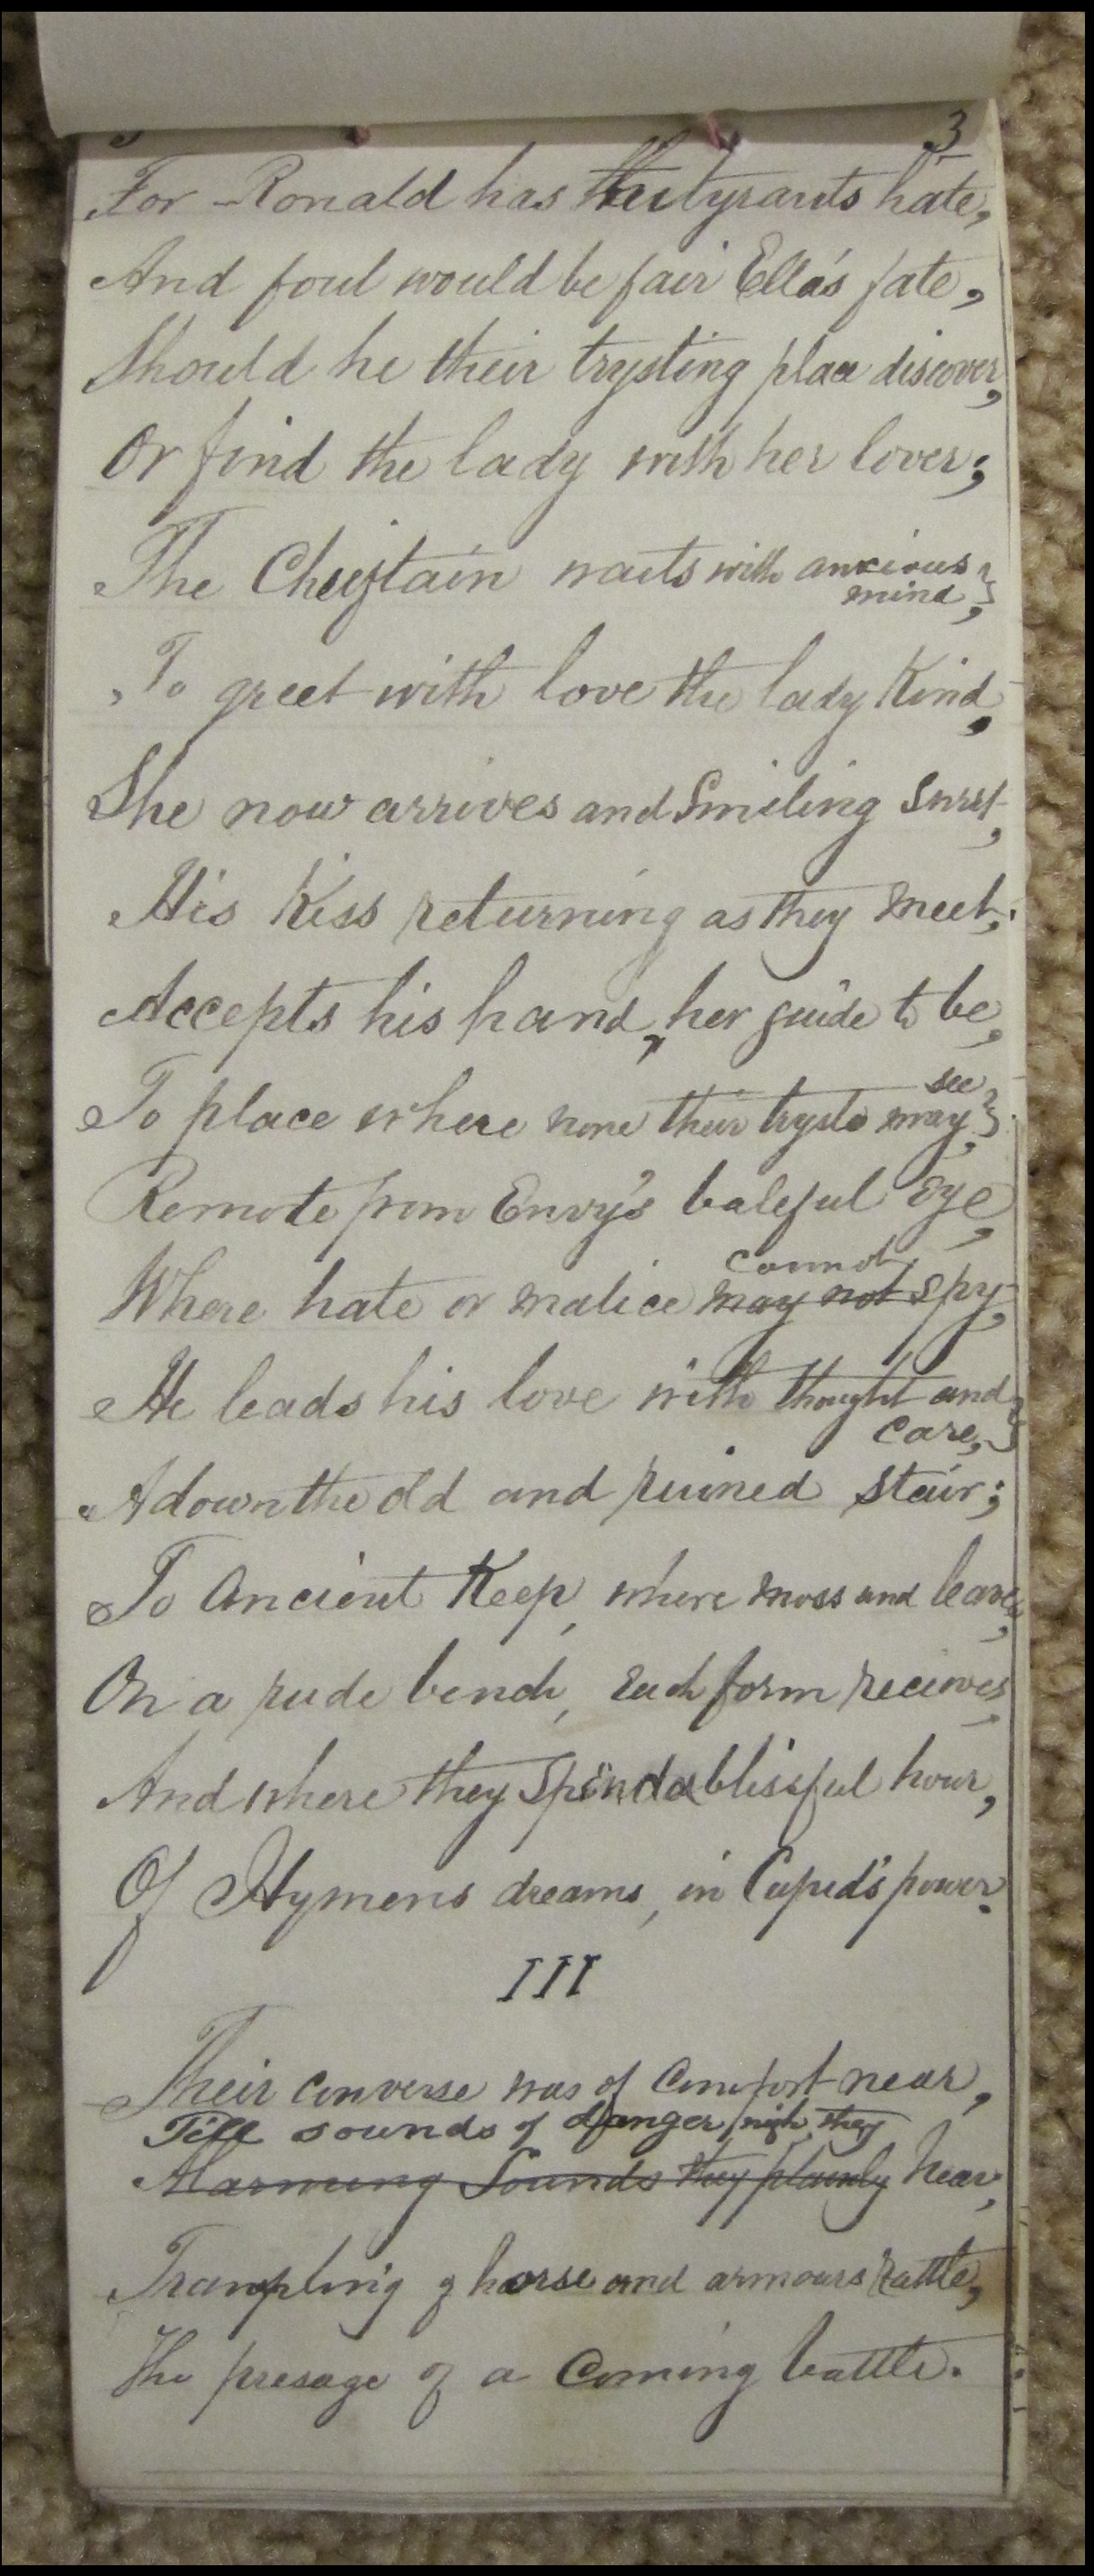 3
For Ronald has the tyrants hate,
And foul would be fair Ella's fate,
Should he their trysting place discover,
Or find the lady with her lover;
The Chieftain waits with anxious
mind,
To greet with love the lady Kind,
She now arrives and Smiling Sweet,
His Kiss returning as they meet;
Accepts his hand, her guide to be,
see
To place where none their tryste may,
Remote from Envy's baleful Eye,
cannot
Where hate or malice may not spy,
He leads his love with thought and
care,
Adown the old and ruined stair;
To Ancient Keep, where moss and leaves,
On a rude bench, Each form recieves,
And where they spend a blissful hour,
Of Hymens dreams, in Cupid's power.
III
Their converse was of Comfort near,
Till sounds of danger nigh they
Alarming Sounds they plainly hear,
Trampling of horse and armours rattle,
The presage of a Coming battle.